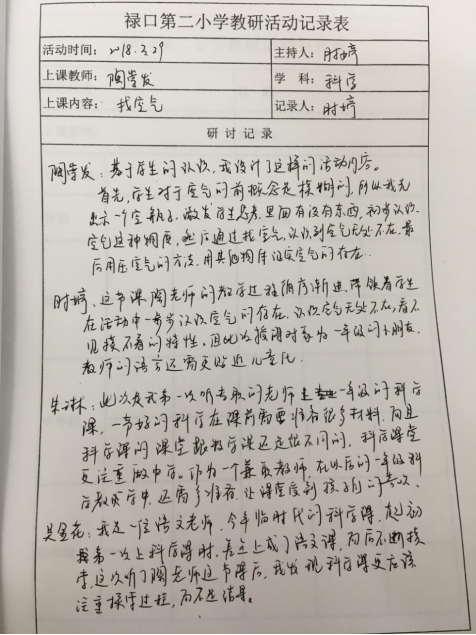 禄口第二小学教研活动记录表
活动时间：2018.3.29 主持人：时婷
上课教师：陶学发 学 科：科学
上课内容：找空气 记录人：时婷
研 讨 记 录
陶学发：基于学生的认识，我设计了这样的活动内容。
首先，学生对于空气的前概念是模糊的，所以我先
出示一个空瓶子，激发学生思考，里面有没有东西，初步认识
空气这种物质，然后通过找空气，认识到空气无处不在，最
后用压空气的方法，用其他物体证实空气的存在。
时婷：这节课陶老师的教学过程循序渐进，带领着学生
在活动中一步步认识空气的存在，认识空气无处不在，看不
见摸不着的特性，因此次授课对象为一年级的小朋友，
教师的语言还需更贴近儿童化。
朱琳：此次是我第一次听专职的老师上一年级的科学
课，一节好的科学在课前需要准备很多材料，而且
科学课的课堂跟数学课还是很不同的，科学课堂
更注重做中学。作为一个兼职教师，在以后的一年级科
学教学中，还需多准备，让课堂受到孩子们的喜欢。
吴金花：我是一位语文老师，今年临时代的科学课，起初
第一次上科学课时，差点上成了语文课，而后不断摸
索，这次听了陶老师这节课后，我发现科学课更应该
注重探索过程，而不是结果。